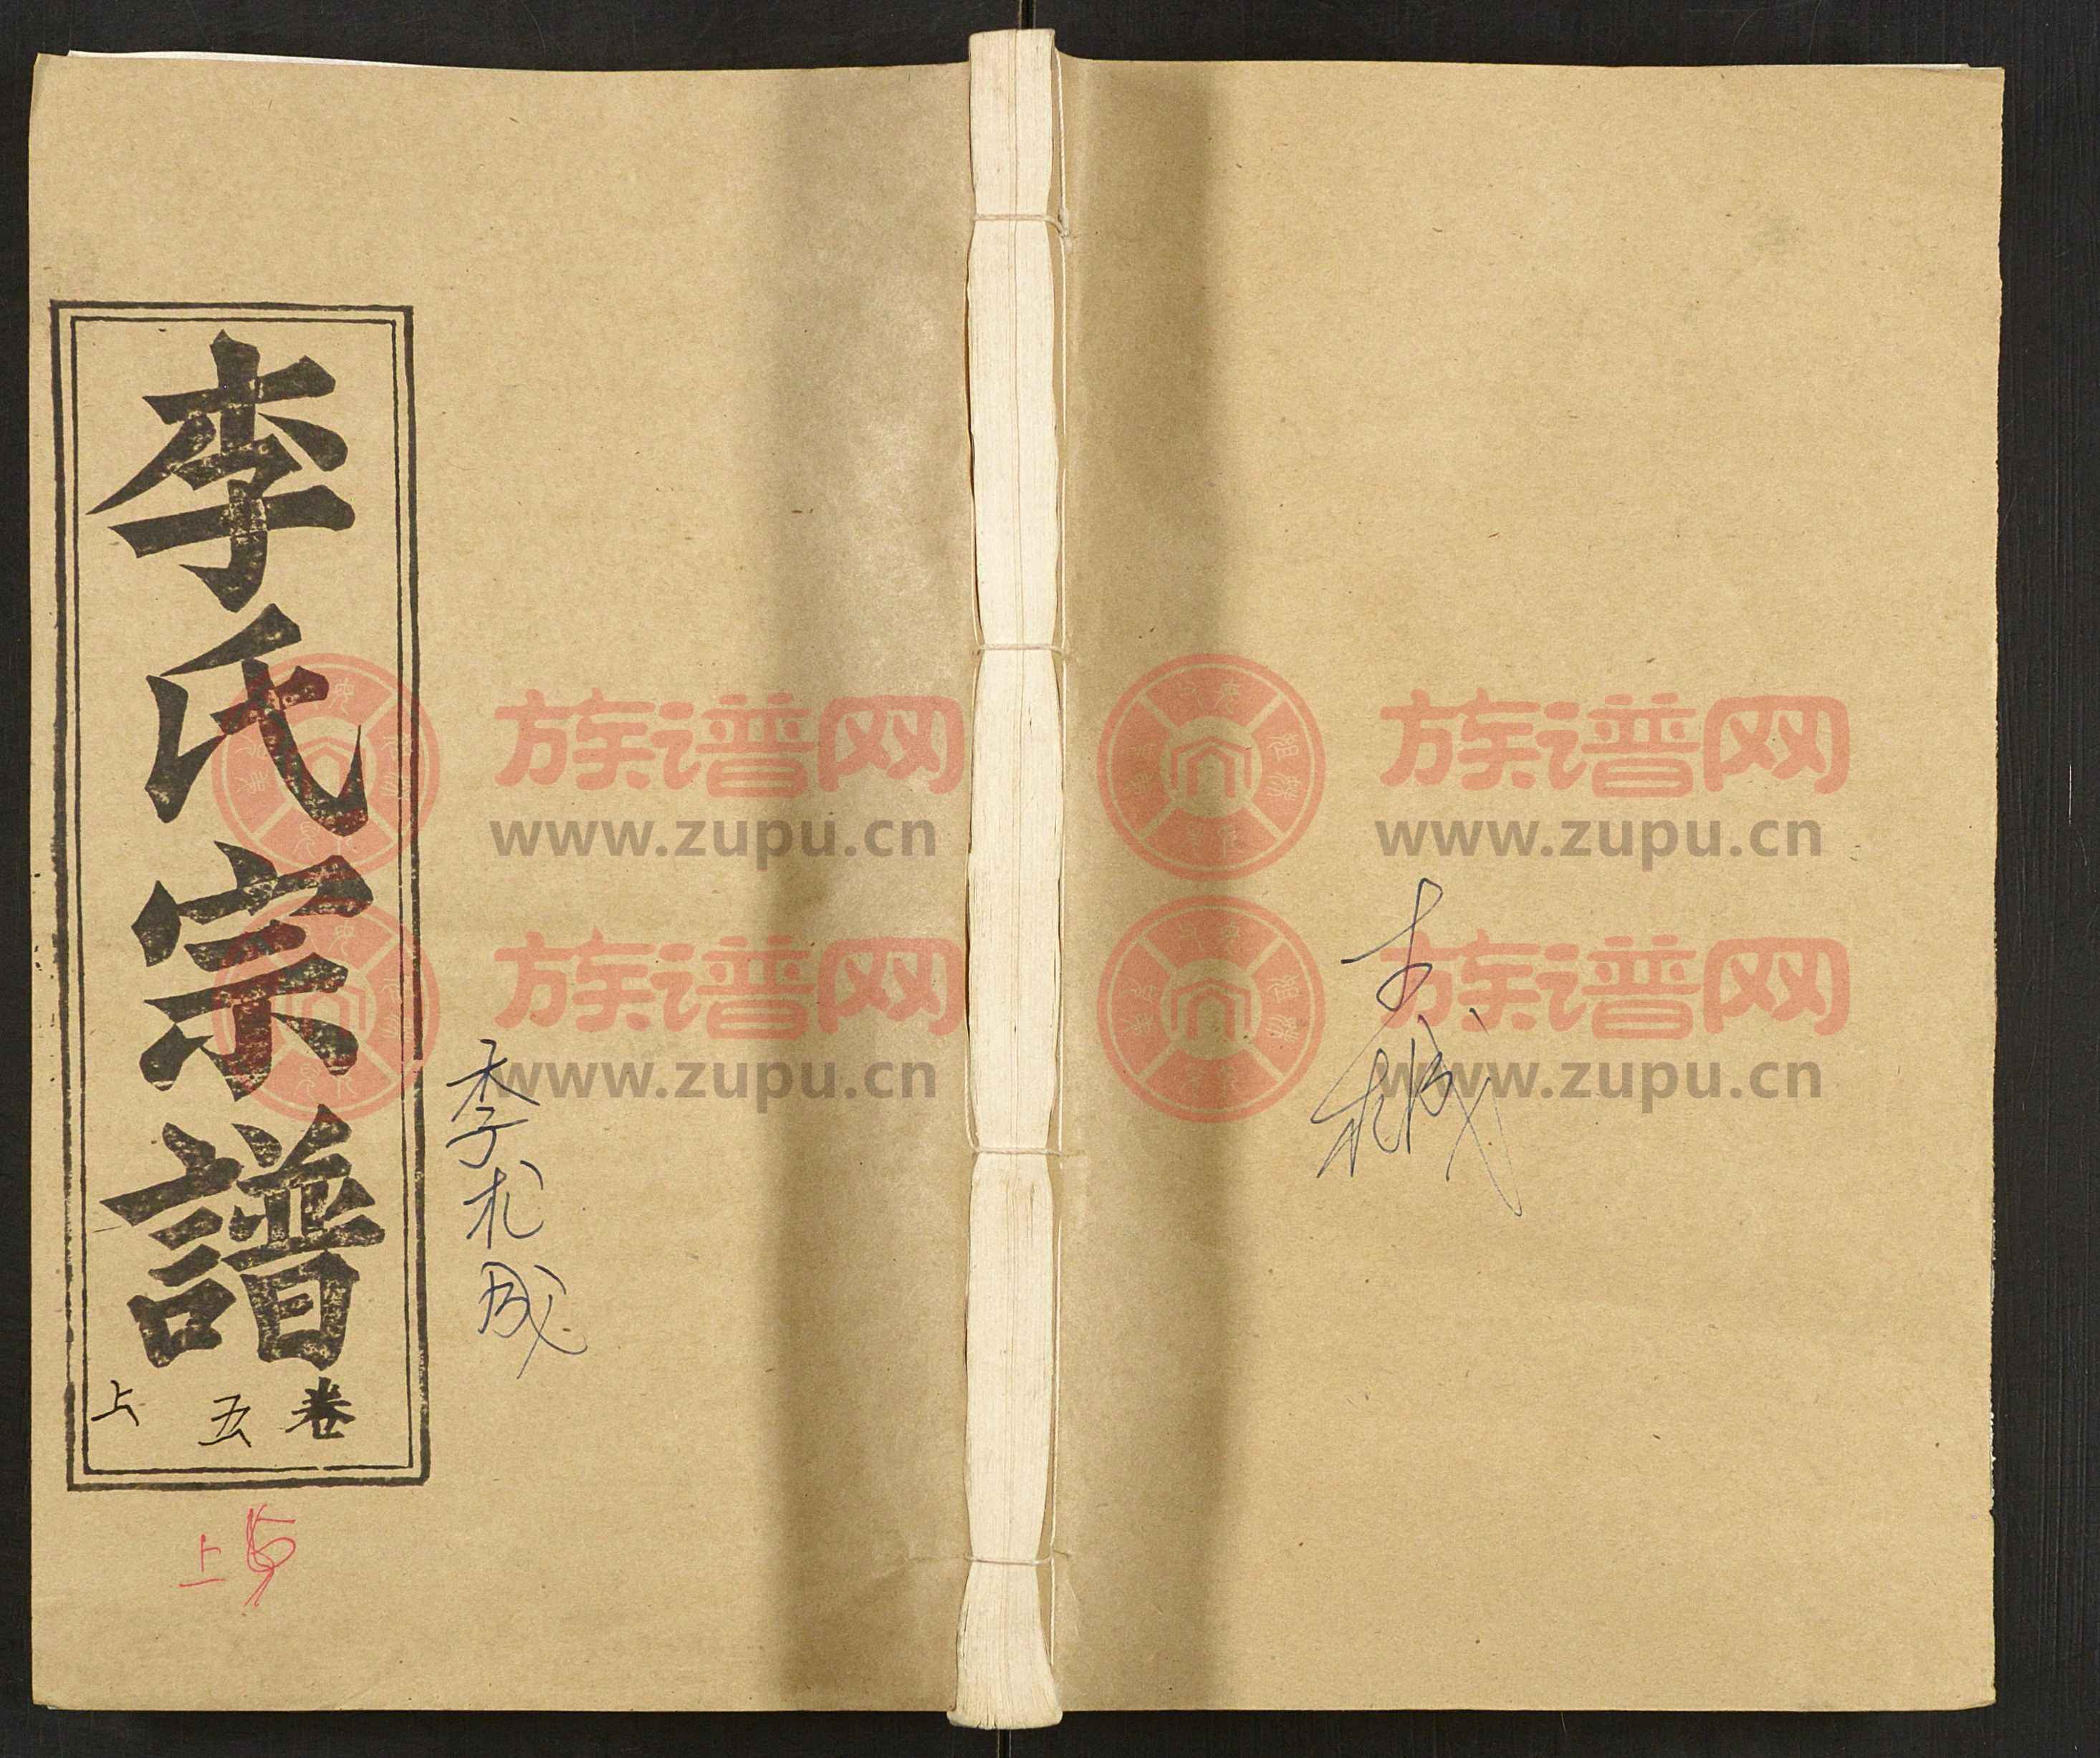 李氏宗譜
卷五上
李札成
上5
族谱网
www.zupu.cn
族谱网
www.zupu.cn
族谱网
www.zupu.cn
族谱网
www.zupu.cn